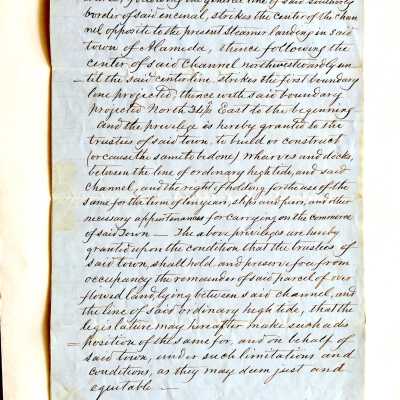 following the general line of said southerly
border of said encinal, strikes the center of the chan
nel opposite to the present Steamer landing in said
town of Alameda, thence following the
center of said Channel northwestwardly un-
til the said center line strikes the first boundary
line projected, thence with said boundary
projected North East to the beginning
and the privilege is hereby granted to the
trustees of said town, to build or construct
(or cause the same to be done) wharves and docks,
between the line of ordinary high tide, and said
channel, and the right of holding for the use of the
same for the term of ten years, slips and piers, and other
necessary appurtenances for carrying on the commerce
of said Town — The above privileges are hereby
granted upon the condition that the trustees of
said town, shall hold and preserve free from
occupancy the remainder of said parcel of over
flowed land, lying between said channel, and
the line of said ordinary high tide, that the
legislature may hereafter make such dis
position of the same for, and on behalf of
said town, under such limitations and
conditions, as they may deem just and
equitable —